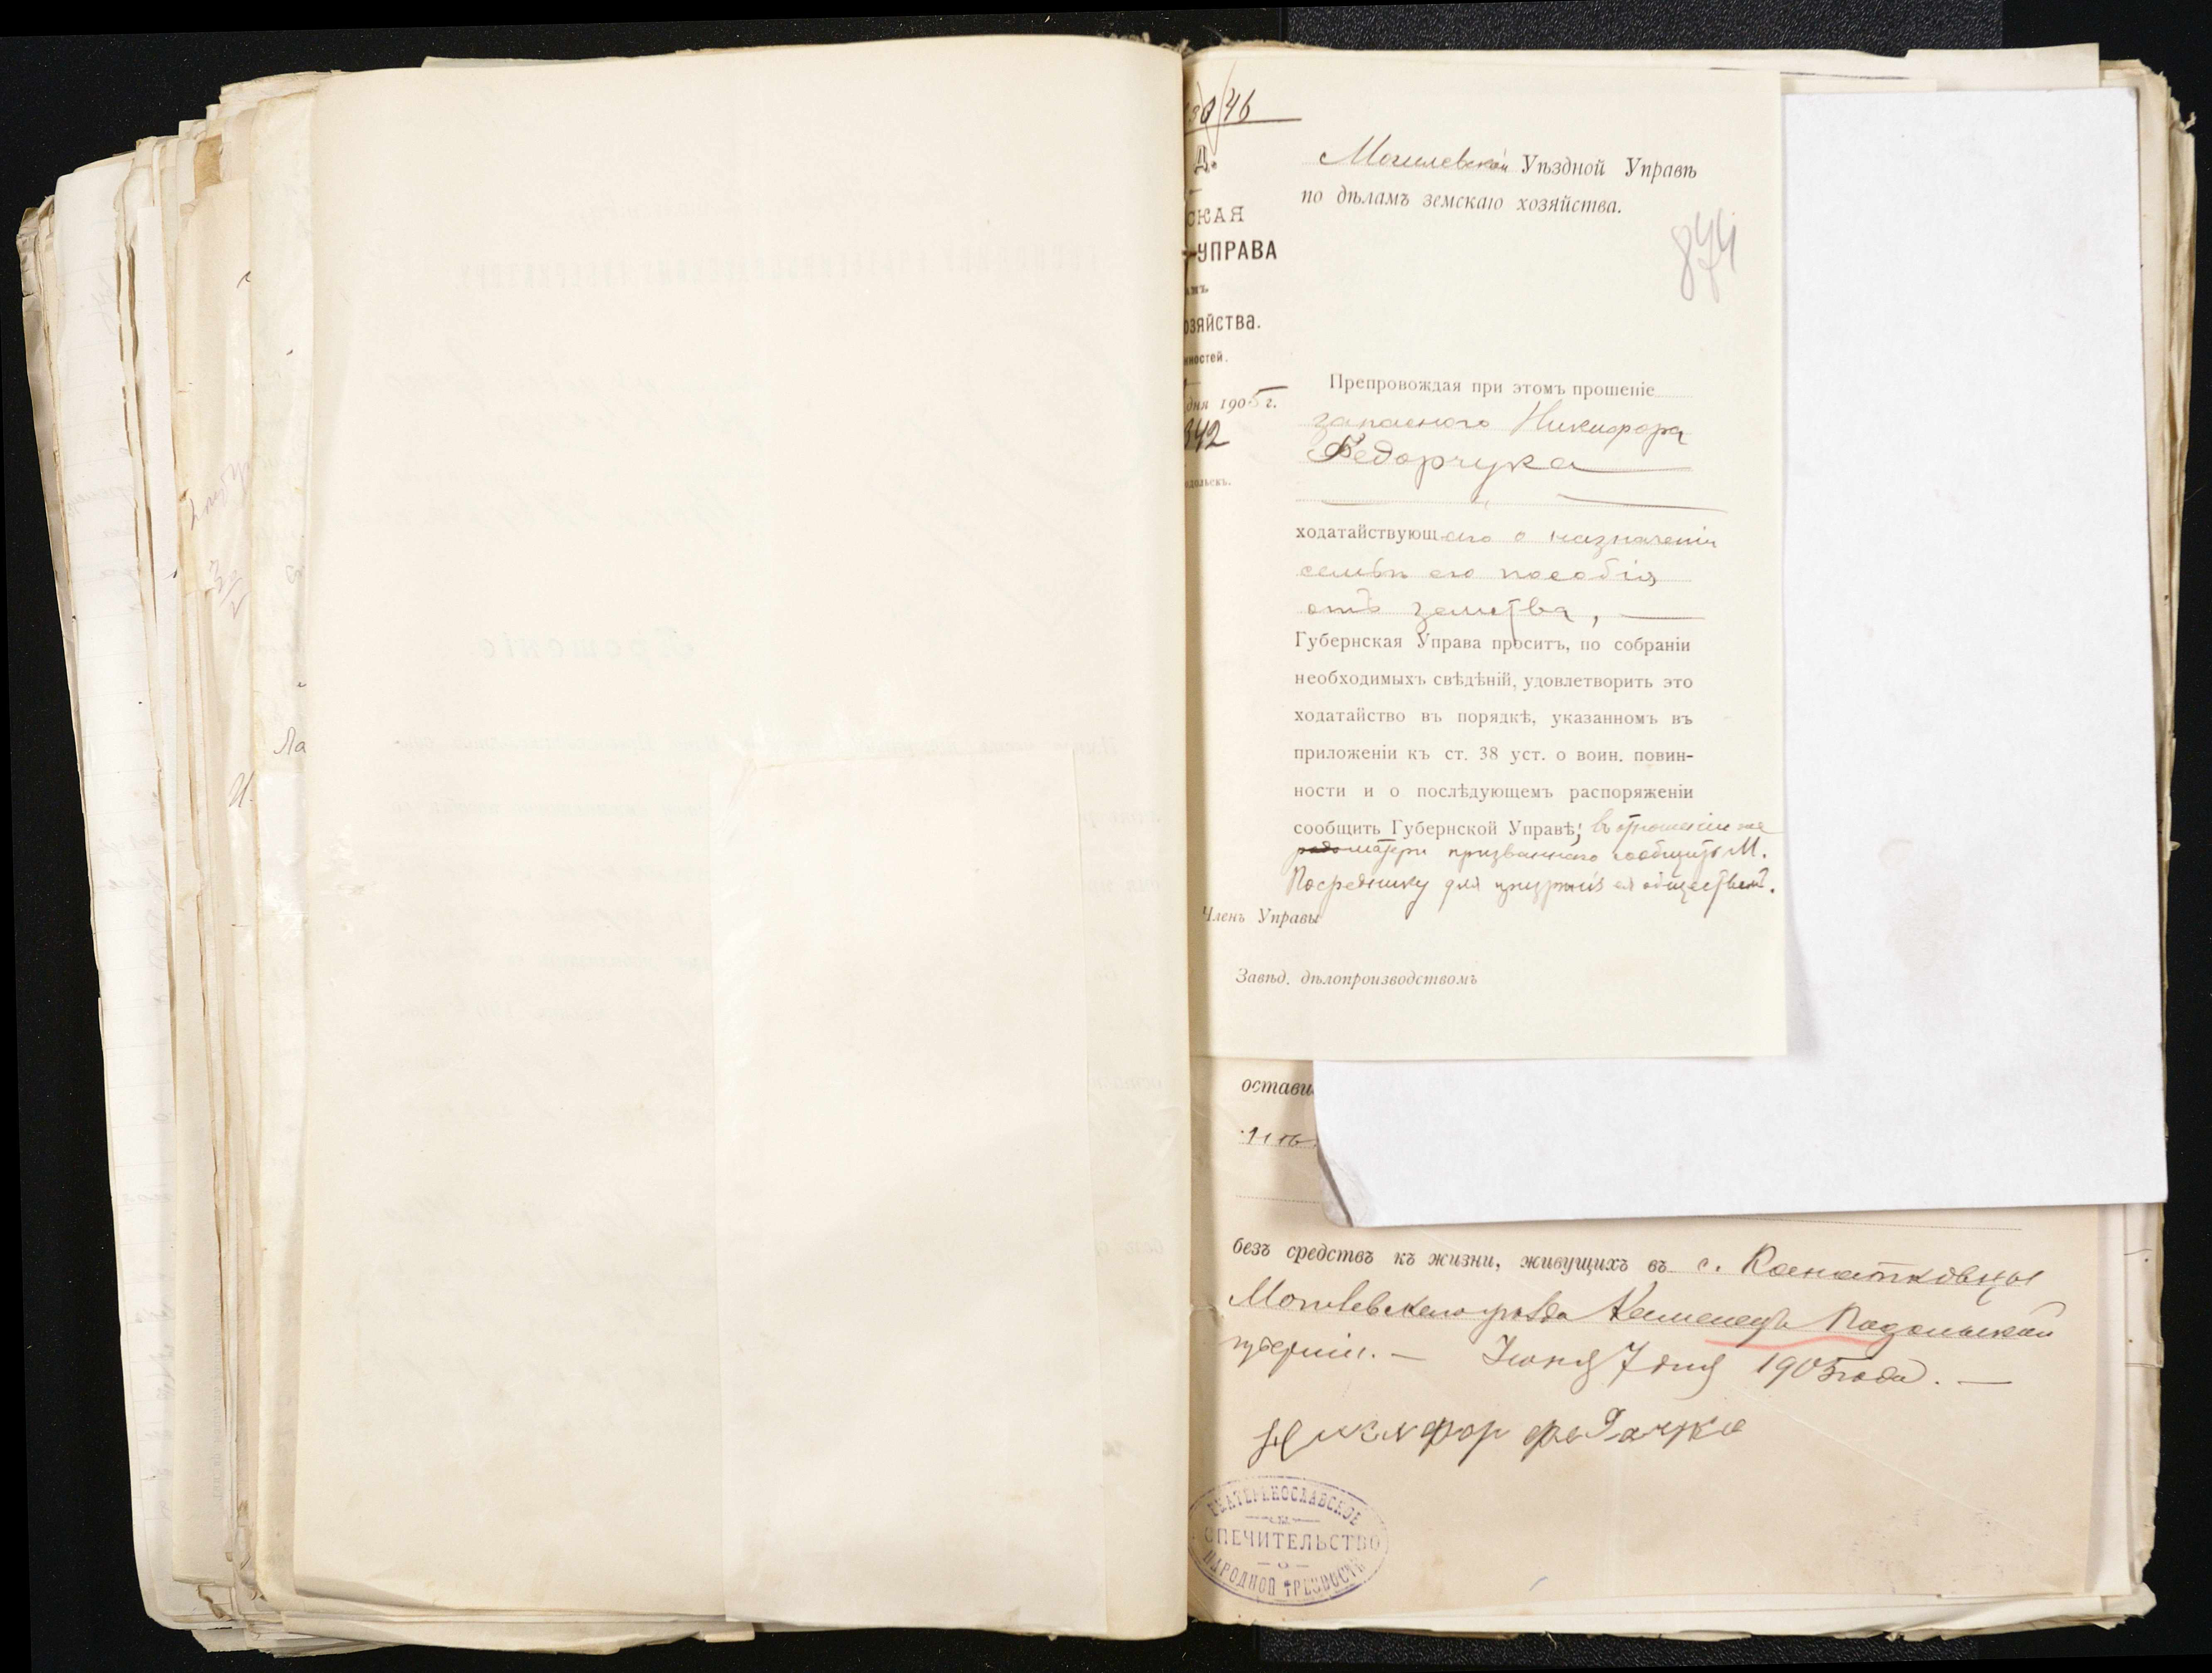 46
Д.
СКАЯ
УПРАВА
озяйства.
ностей.
дня 1905 г.
342
одольскъ.
Могилевской Уѣздной Управѣ
по дѣламъ земскаго хозяйства.
874
Препровождая при этомъ прошеніе
запасного Никифора
Федорчука
ходатайствующаго о назначеніи
семьѣ его пособія
отъ земства,
Губернская Управа проситъ, по собраніи
необходимыхъ свѣдѣній, удовлетворить это
ходатайство въ порядкѣ, указанномъ въ
приложеніи къ ст. 38 уст. о воин. повин-
ности и о послѣдующемъ распоряженіи
сообщить Губернской Управѣ; въ отношеніи же
матери призваннаго сообщить М.
Посреднику для призрѣнія ея обществом.
Членъ Управы
Завѣд. дѣлопроизводствомъ
остави
безъ средствъ къ жизни, живущихъ въ с.
Могилевскаго уѣзда Каменецъ Подольской
губерніи. — Іюня 7 дня 1905 года. —
Никифор
ЕКАТЕРИНОСЛАВСКОЕ
ПОПЕЧИТЕЛЬСТВО
— О —
НАРОДНОЙ ТРЕЗВОСТИ
Ла
И.